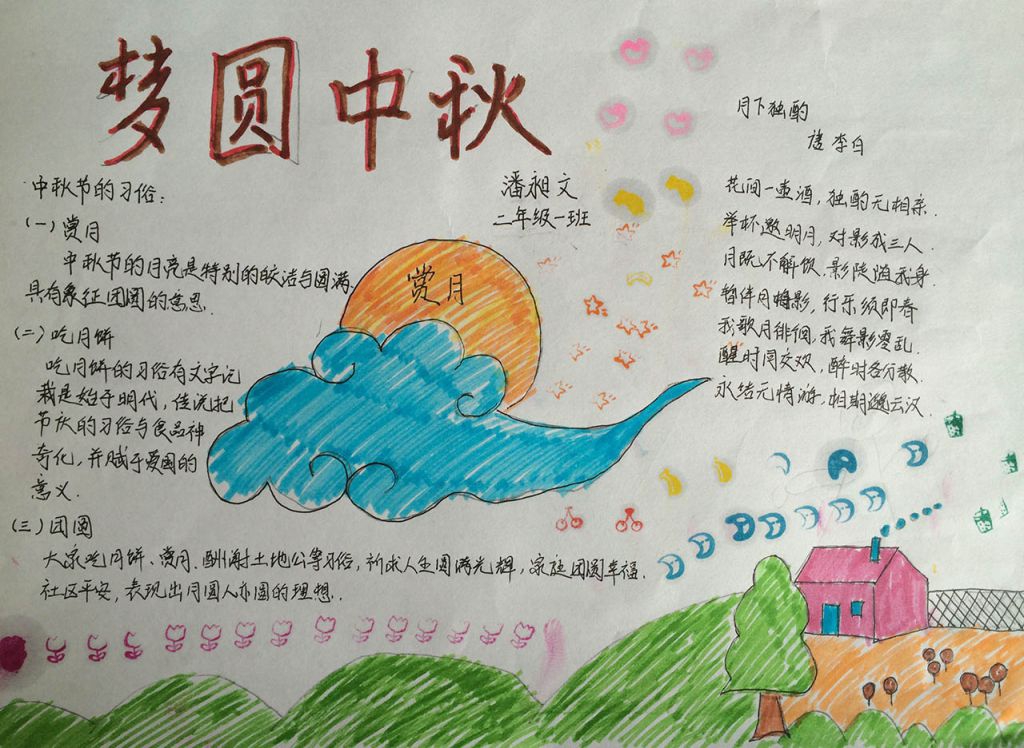 梦圆中秋
中秋节的习俗:
(一)赏月
中秋节的月亮是特别的皎洁与圆满,
具有象征团圆的意思.
(二)吃月饼
吃月饼的习俗有文字记
载是始于明代,传说把
节庆的习俗与食品神
奇化,并赋予爱国的
意义.
(三)团圆
大家吃月饼、赏月、酬谢土地公等习俗,祈求人生圆满光辉,家庭团圆幸福,
社区平安,表现出月圆人亦圆的理想.
潘昶文
二年级一班
赏月
月下独酌
唐 李白
花间一壶酒,独酌无相亲.
举杯邀明月,对影成三人.
月既不解饮,影徒随我身.
暂伴月将影,行乐须即春
我歌月徘徊,我舞影零乱.
醒时同交欢,醉时各分散.
永结无情游,相期邈云汉.